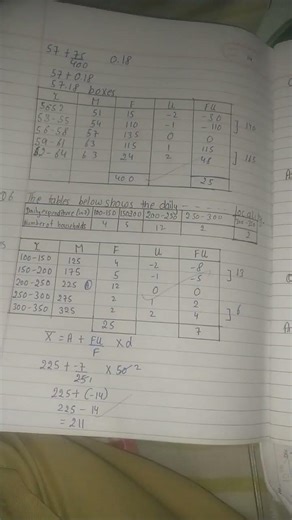 57 + 75/400 0.18
57 + 0.18
57.18 boxes
X M F U FU
50-52 51 15 -2 -30
53-55 54 110 -1 -110
56-58 57 135 0 0
59-61 63 115 1 115
62-64 63 24 2 48
400 25
Q6 The tables below shows the daily - - - - locality.
Daily expenditure (in ₹) 100-150 150-200 200-250 250-300 300-350
Number of households 4 5 12 2 2
X M F U FU
100-150 125 4 -2 -8
150-200 175 5 -1 -5 ] 13
200-250 225 12 0 0
250-300 275 2 1 2
300-350 325 2 2 4 ] 6
25 7
X̄ = A + FU/F × d
225 + -7/25 × 50 2
225 + (-14)
225 - 14
= 211